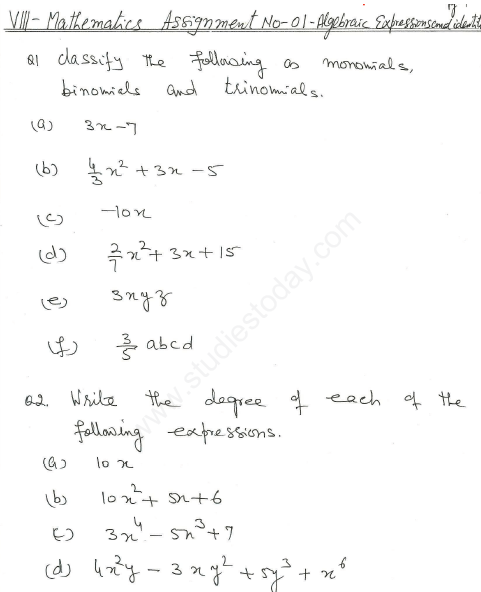 VIII - Mathematics Assignment No-01 - Algebraic Expressions and identit
Q1 Classify the following as monomials,
binomials and trinomials.
(a) 3x-7
(b) 4/3 x² + 3x - 5
(c) -10x
(d) 2/7 x² + 3x + 15
(e) 3xyz
(f) 3/5 abcd
Q2. Write the degree of each of the
following expressions.
(a) 10x
(b) 10x² + 5x + 6
(c) 3x⁴ - 5x³ + 7
(d) 4x²y - 3xy² + 5y³ + x⁶
www.studiestoday.com